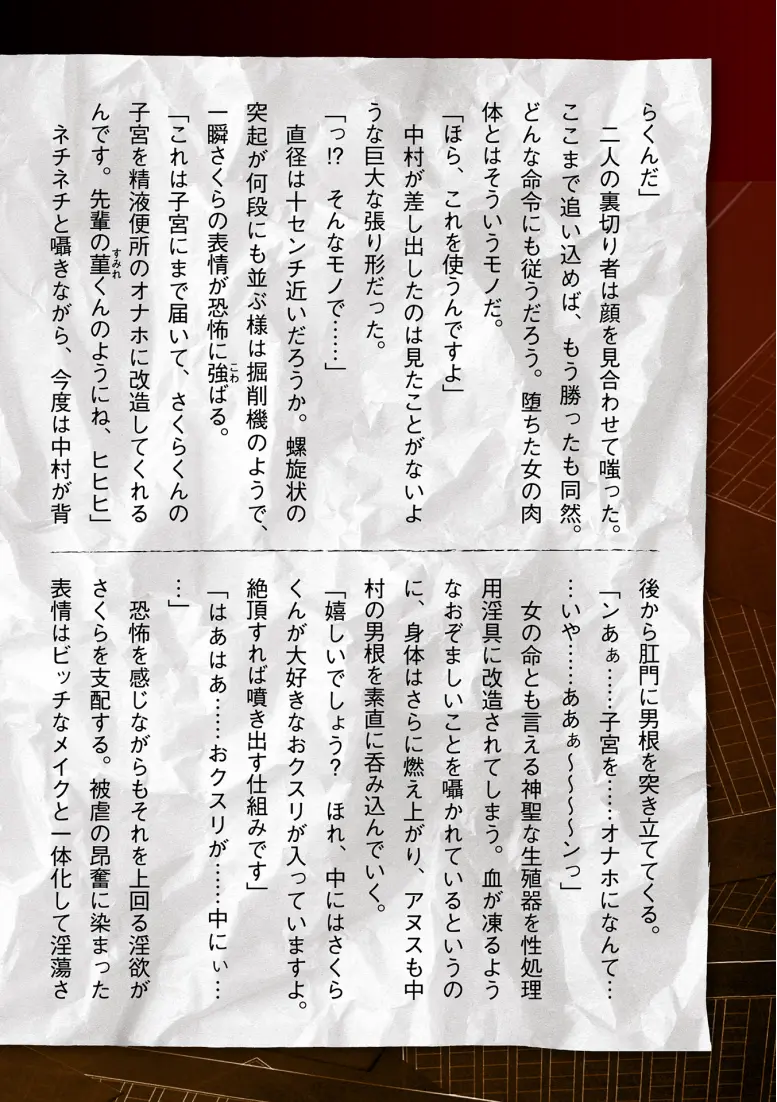 らくんだ」
　二人の裏切り者は顔を見合わせて嗤った。
ここまで追い込めば、もう勝ったも同然。
どんな命令にも従うだろう。堕ちた女の肉
体とはそういうモノだ。
「ほら、これを使うんですよ」
　中村が差し出したのは見たことがないよ
うな巨大な張り形だった。
「っ!?　そんなモノで……」
　直径は十センチ近いだろうか。螺旋状の
突起が何段にも並ぶ様は掘削機のようで、
一瞬さくらの表情が恐怖に強ばる。
「これは子宮にまで届いて、さくらくんの
子宮を精液便所のオナホに改造してくれる
んです。先輩の菫くんのようにね、ヒヒヒ」
　ネチネチと囁きながら、今度は中村が背
後から肛門に男根を突き立ててくる。
「ンあぁ……子宮を……オナホになんて…
…いや……ああぁ～～～～ンっ」
　女の命とも言える神聖な生殖器を性処理
用淫具に改造されてしまう。血が凍るよう
なおぞましいことを囁かれているというの
に、身体はさらに燃え上がり、アヌスも中
村の男根を素直に呑み込んでいく。
「嬉しいでしょう？　ほれ、中にはさくら
くんが大好きなおクスリが入っていますよ。
絶頂すれば噴き出す仕組みです」
「はあはあ……おクスリが……中にぃ…
…」
　恐怖を感じながらもそれを上回る淫欲が
さくらを支配する。被虐の昂奮に染まった
表情はビッチなメイクと一体化して淫蕩さ